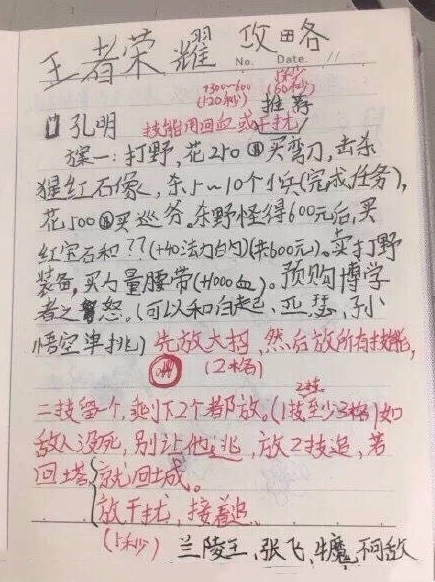 王者荣耀 攻略
No. Date. 11
+300~600
(120秒) (60秒)
推荐
孔明 技能用回血或干扰
方案一:打野,花250买弯刀,击杀
猩红石像,杀5~10个小兵(完成任务),
花500买巡务。杀野怪得600元后,买
红宝石和??(+40法力的)(共600元)。卖打野
装备,买力量腰带(+1000血)。预购博学
者之怒。(可以和白起、亚瑟、孙
悟空单挑)先放大招,然后放所有技能,
(2格)
二技留一个,剩下2个都放。(1技至少3格)如
敌人没死,别让他逃,放2技追,若
回塔 就回城。
放干扰,接着追、
(5秒) 兰陵王、张飞、牛魔、不可敌